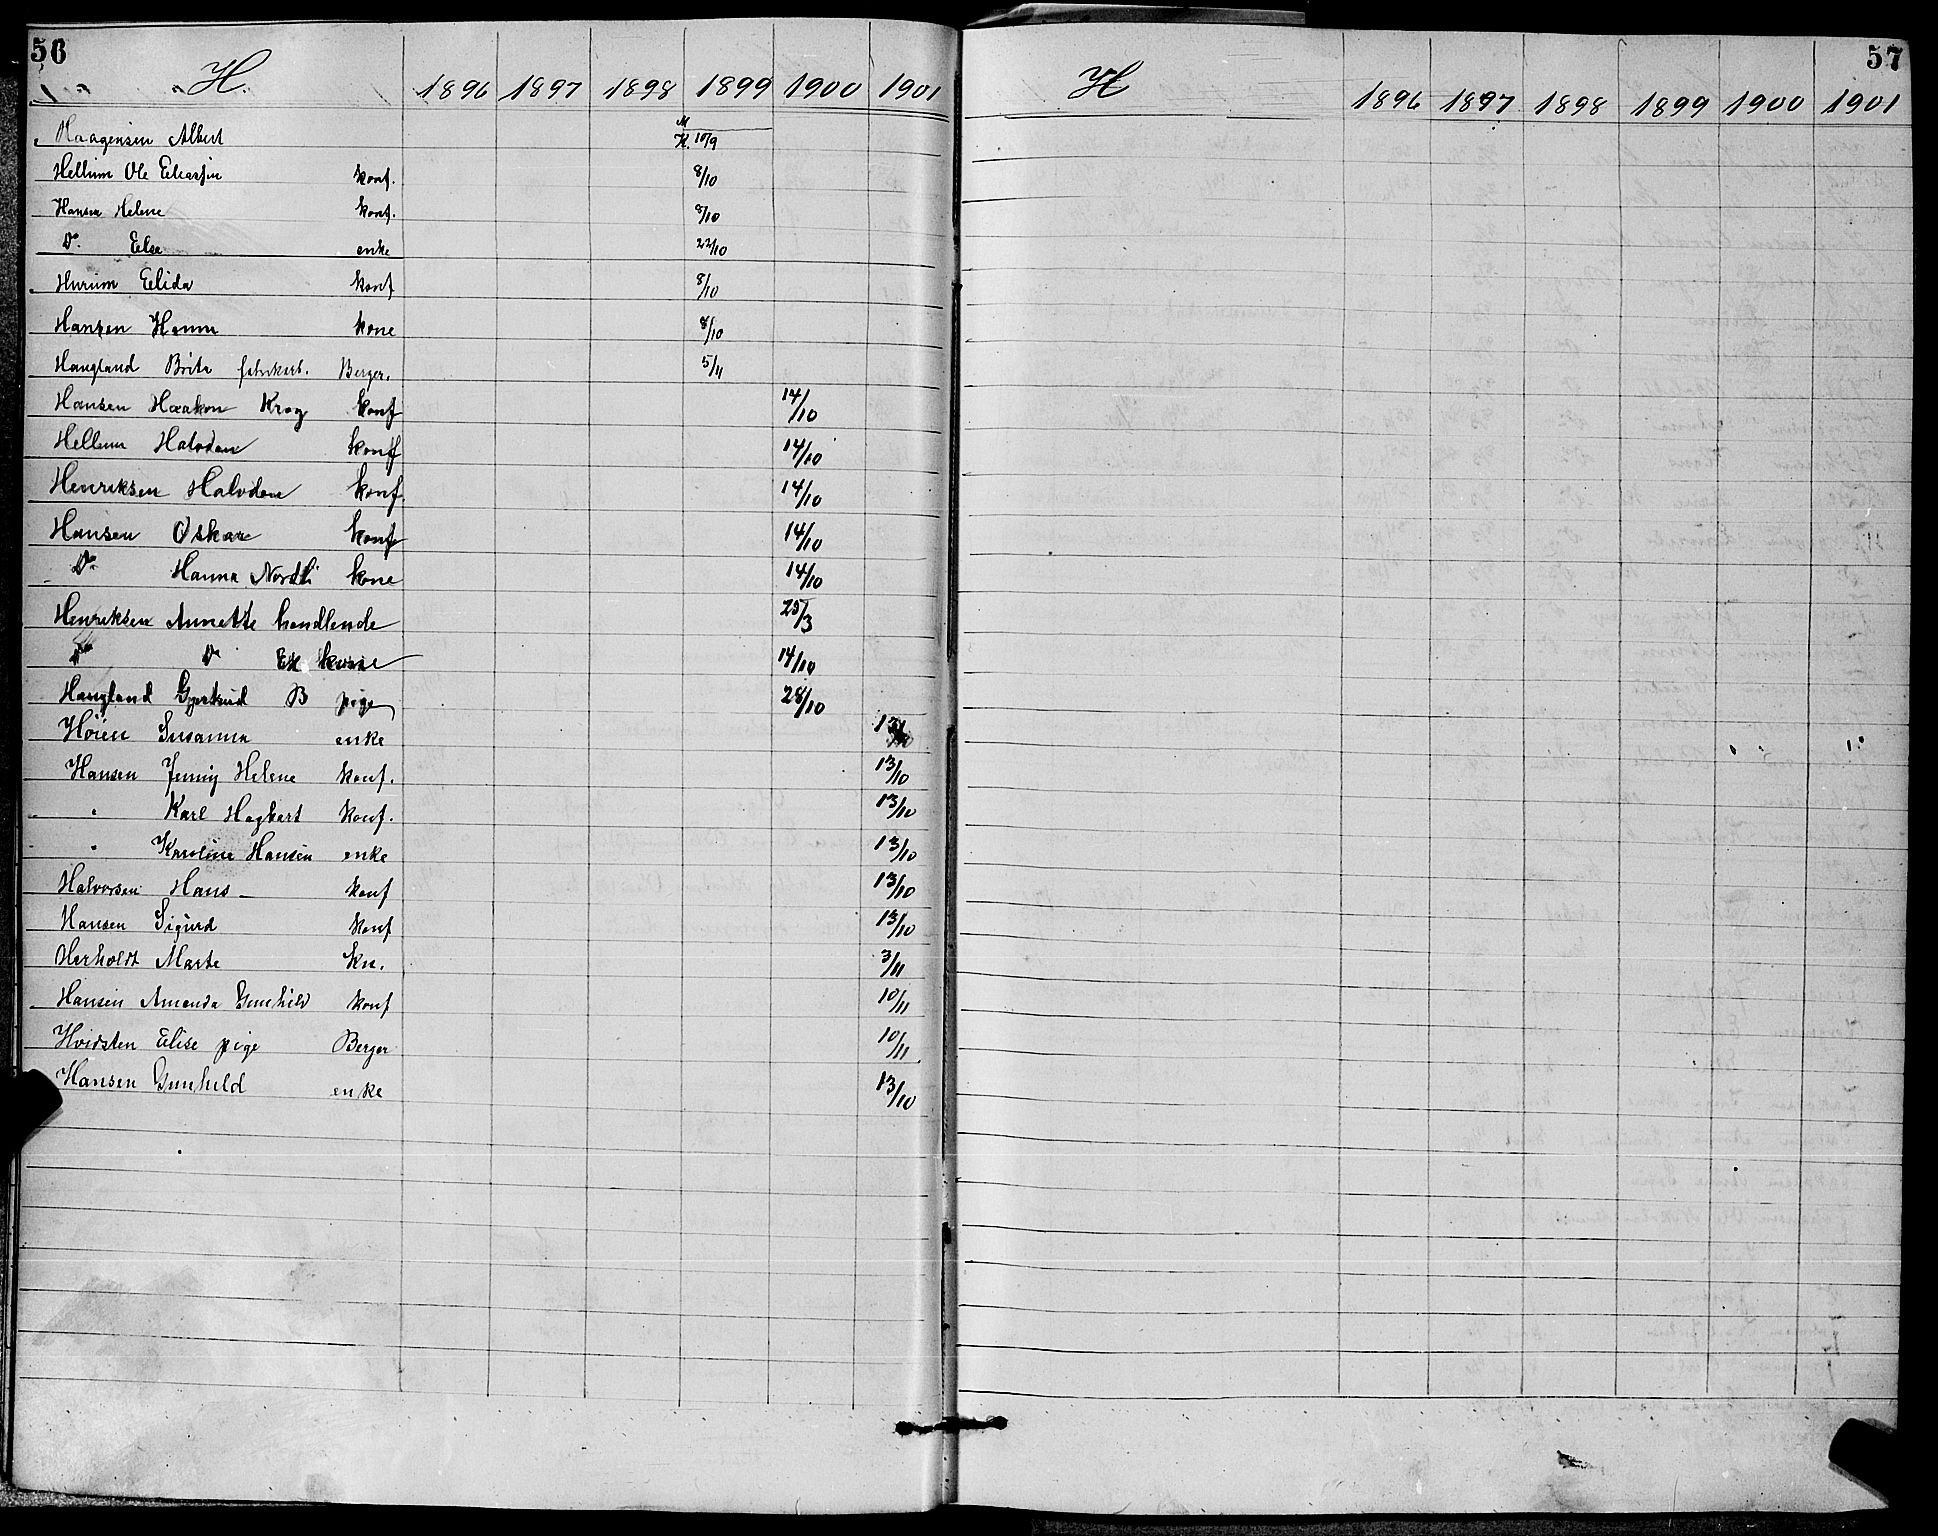 56
H. 1896 1897 1898 1899 1900 1901
Haagensen Albert M K. 10/9
Hellum Ole konf. 8/10
Hansen Helene konf. 8/10
Do. Else enke 22/10
Hurum Elida konf 8/10
Hansen Hanna kone 8/10
Haugland Brita Berger. 5/11
Hansen Haakon Krog konf 14/10
Hellum Halvdan konf 14/10
Henriksen Halvdan konf. 14/10
Hansen Oskar konf 14/10
Do Hanna Nordli kone 14/10
Henriksen Annette handlende 25/3
Do Do 14/10
Haugland Gjertrud B pige 28/10
Höien Susanna enke
Hansen Jenny Helene konf. 13/10
" Karl Hagbart konf. 13/10
" Karoline Hansen enke 13/10
Halvorsen Hans konf 13/10
Hansen Sigurd konf 13/10
Herholdt Marte kn. 3/11
Hansen Amanda Gunhild konf 10/11
Hvidsten Elise pige Berger 10/11
Hansen Gunhild enke 13/10
57
H 1896 1897 1898 1899 1900 1901